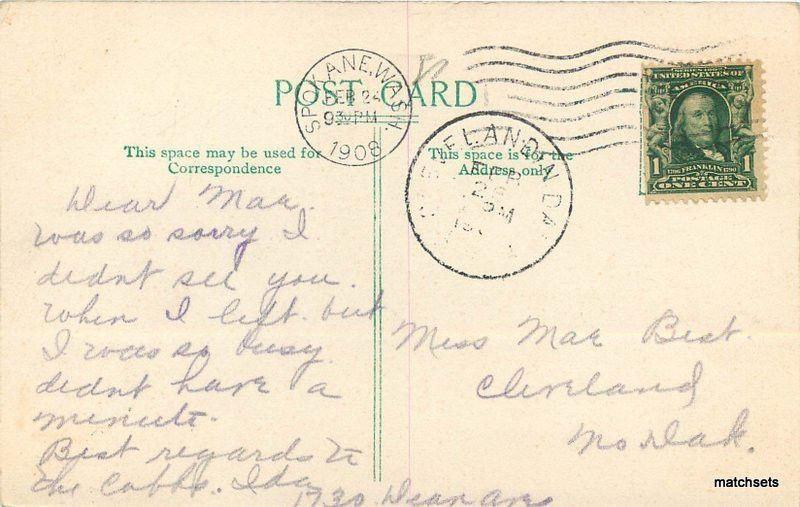 POST CARD
SPOKANE, WASH.
FEB 24
930 PM
1908
This space may be used for
Correspondence
This space is for the
Address only
CLEVELAND, N. DAK.
FEB
SERIES 1902
UNITED STATES OF
AMERICA
1 1
1706 FRANKLIN 1790
POSTAGE
ONE CENT
Dear Mae.
Was so sorry I
didnt see you.
When I left. but
I was so busy
didnt have a
minute.
Best regards to
the Cobbs. Ida
1730 Dean Ave
Miss Mae Best.
Cleveland
No Dak.
matchsets